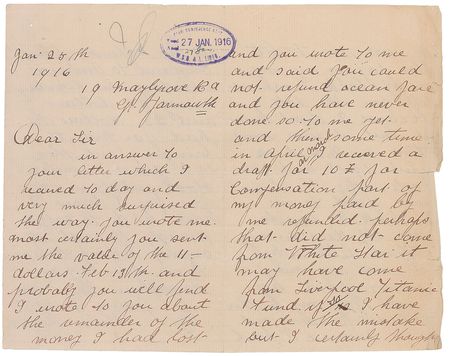 Jan 25th
1916
27 JAN. 1916
19 Maygrove Rd
Gt Yarmouth
Dear Sir
in answer to
your letter which I
receved to day and
very much surprised
the way you wrote me.
most certainly you sent
me the value of the 11-
dollars. Feb 13th and
probably you will find
I wrote to you about
the remainder of the
money I had cost
and you wrote to me
and said you could
not refund ocean fare
and you have never
done so to me yet.
and then some time
in April or March I receved a
draft for 10 £ for
Compensation part of
my money paid by
me refunded. perhaps
that did not come
from White Star it
may have come
from Liverpool Titanic
Fund if so I have
made the mistake
but I certainly thought